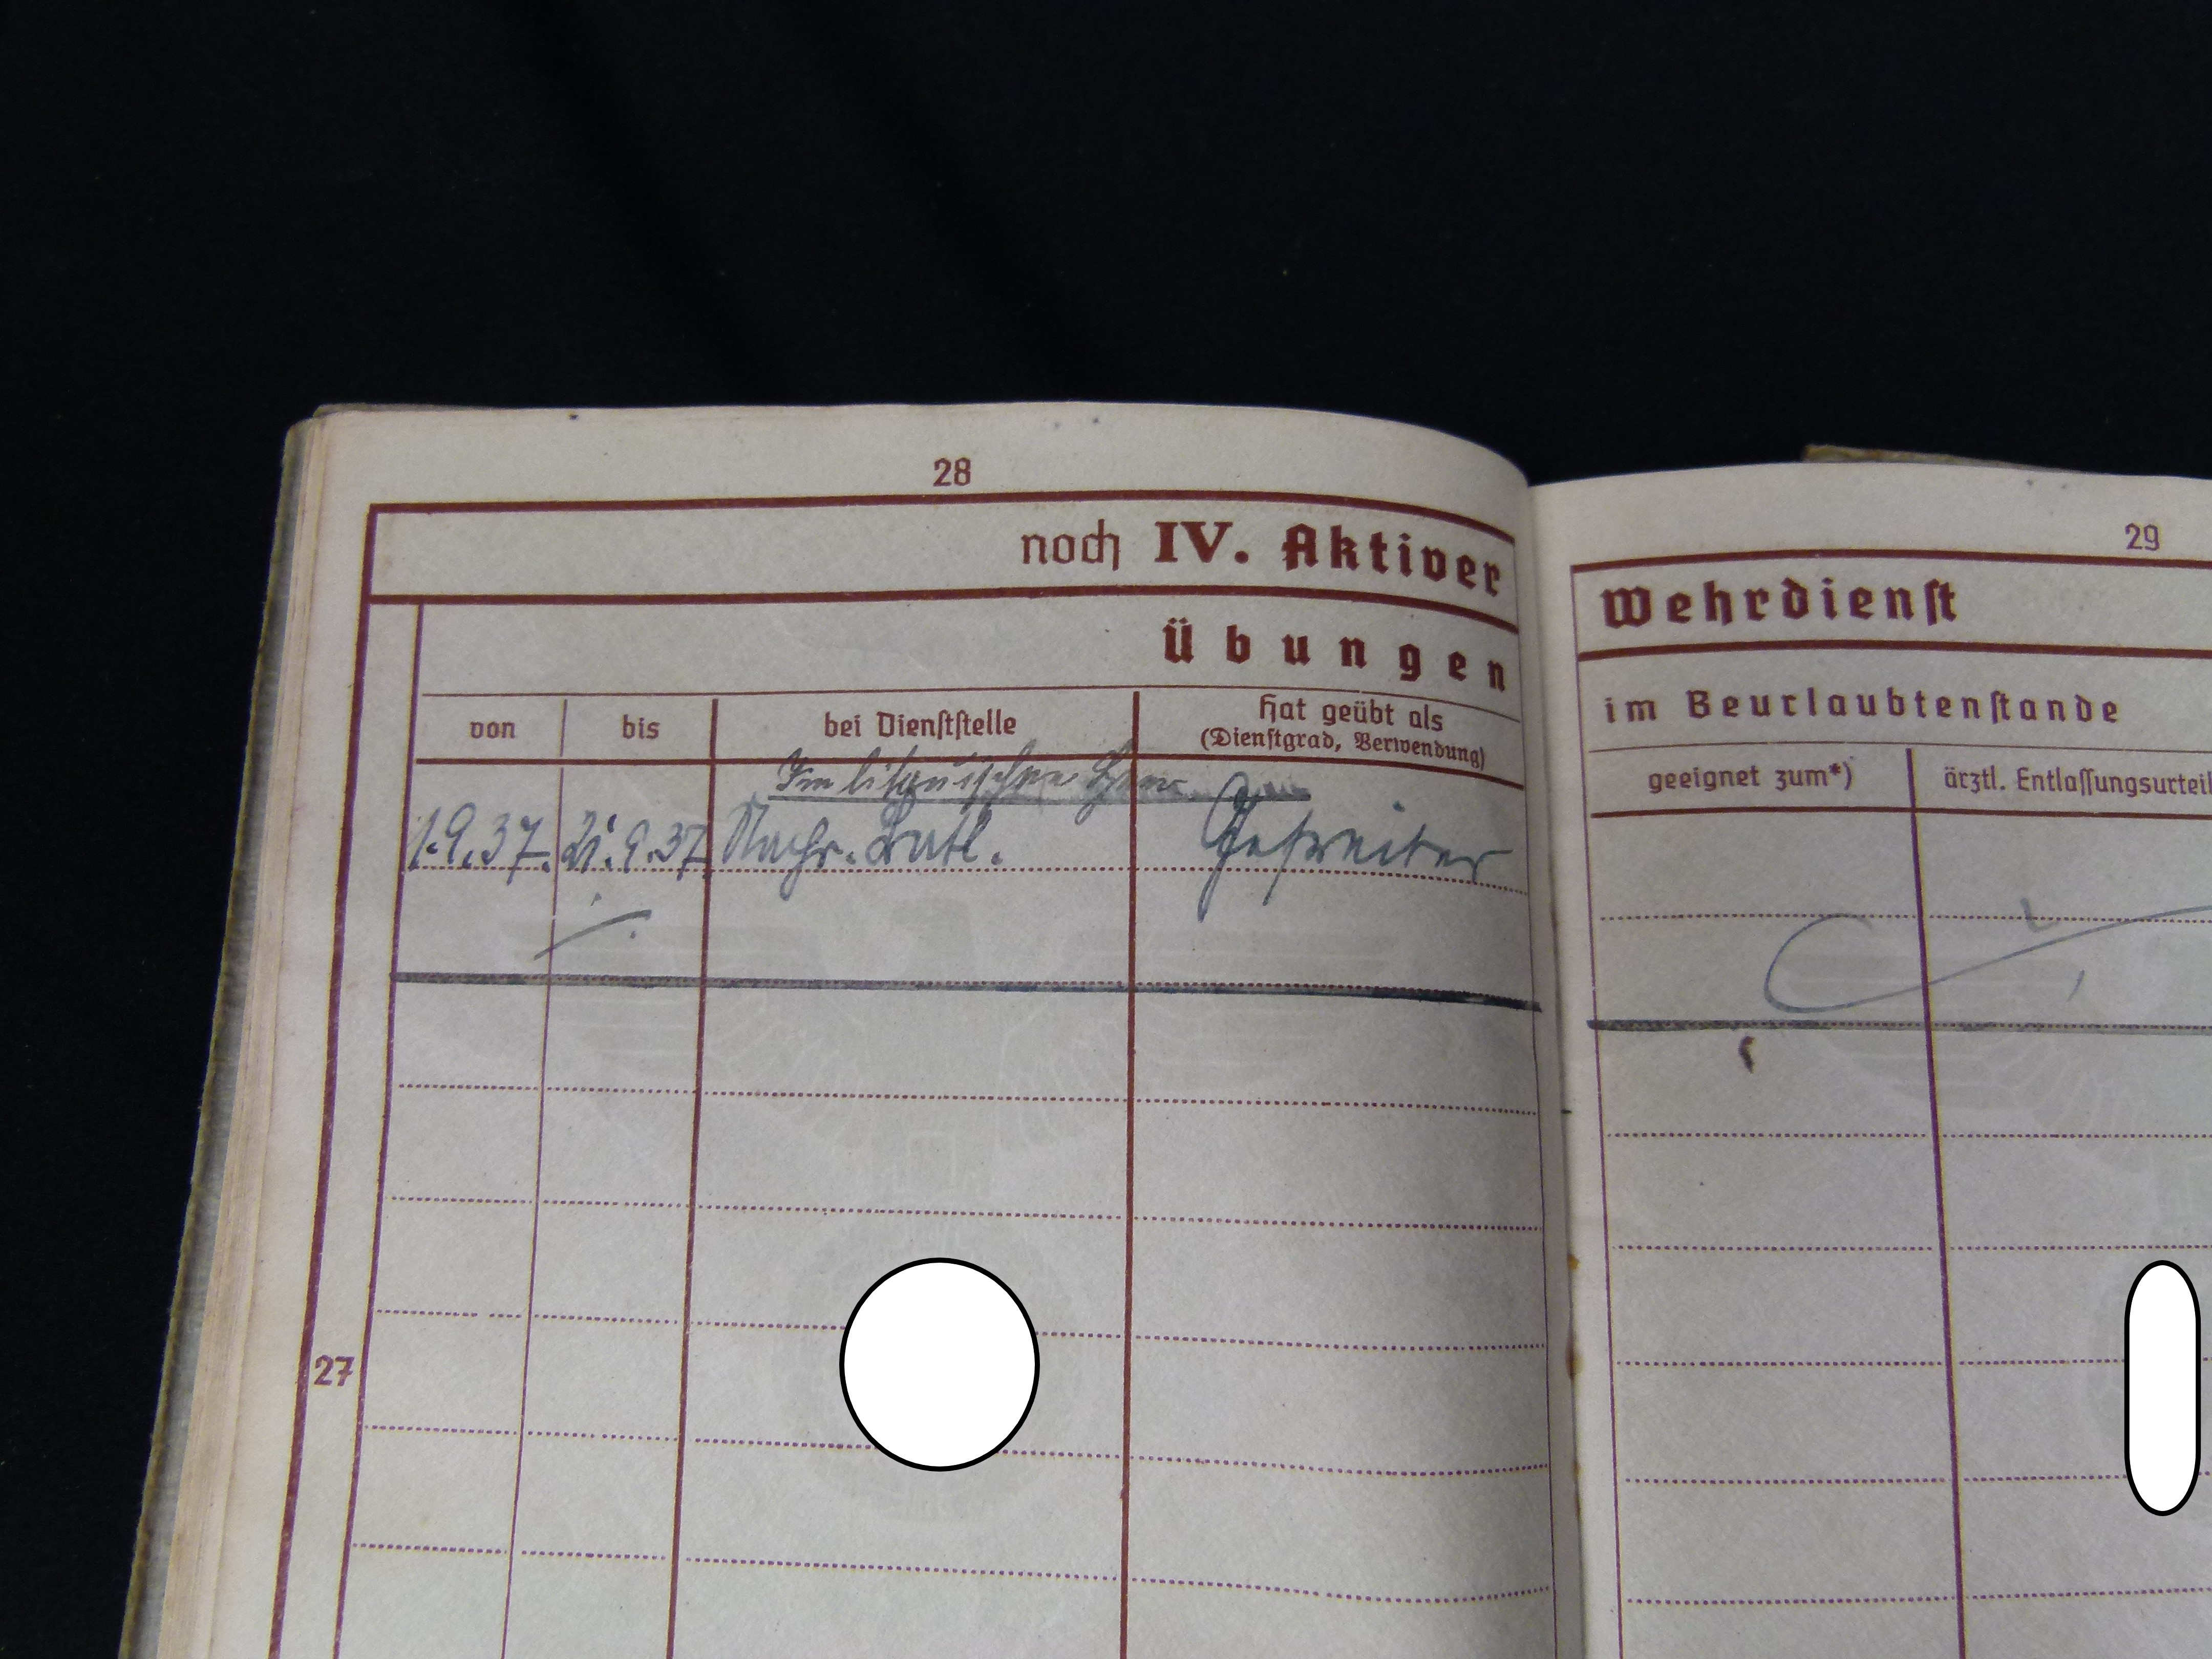 28
noch IV. Aktiver
Übungen
von bis bei Dienststelle Hat geübt als
(Dienstgrad, Verwendung)
Im litauischen Heer
1.9.37. 21.9.37 Nachr. Batl. Gefreiter
27
29
Wehrdienst
im Beurlaubtenstande
geeignet zum*) ärztl. Entlassungsurteil